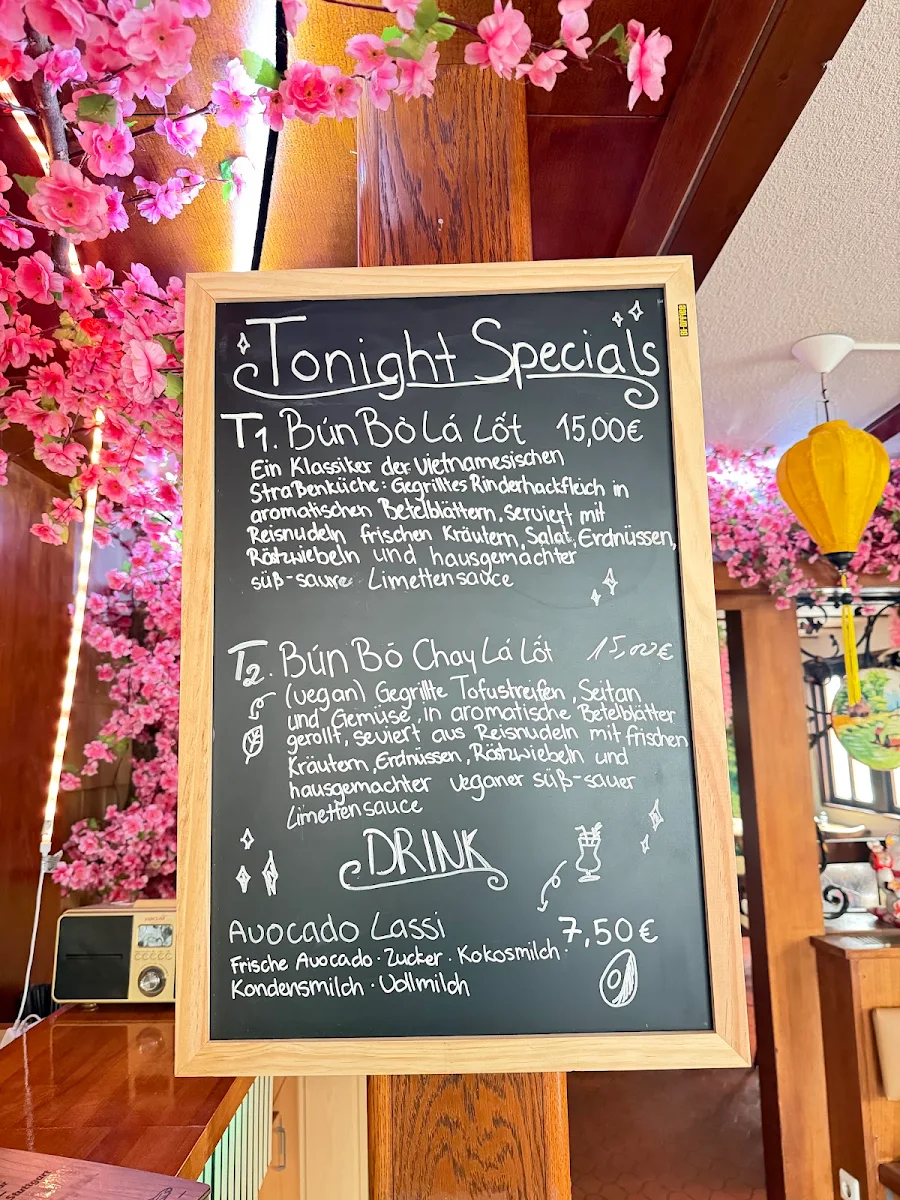 Tonight Specials
T1. Bún Bò Lá Lốt 15,00€
Ein Klassiker der vietnamesischen
Straßenküche: Gegrilltes Rinderhackfleich in
aromatischen Betelblättern, serviert mit
Reisnudeln frischen Kräutern, Salat, Erdnüssen,
Röstzwiebeln und hausgemachter
süß-saure Limettensauce
T2. Bún Bò Chay Lá Lốt 15,00€
(vegan) Gegrillte Tofustreifen, Seitan
und Gemüse, in aromatische Betelblätter
gerollt, seviert aus Reisnudeln mit frischen
Kräutern, Erdnüssen, Röstzwiebeln und
hausgemachter veganer süß-sauer
Limettensauce
DRINK
Avocado Lassi 7,50€
Frische Avocado · Zucker · Kokosmilch ·
Kondensmilch · Vollmilch
Stuttgart